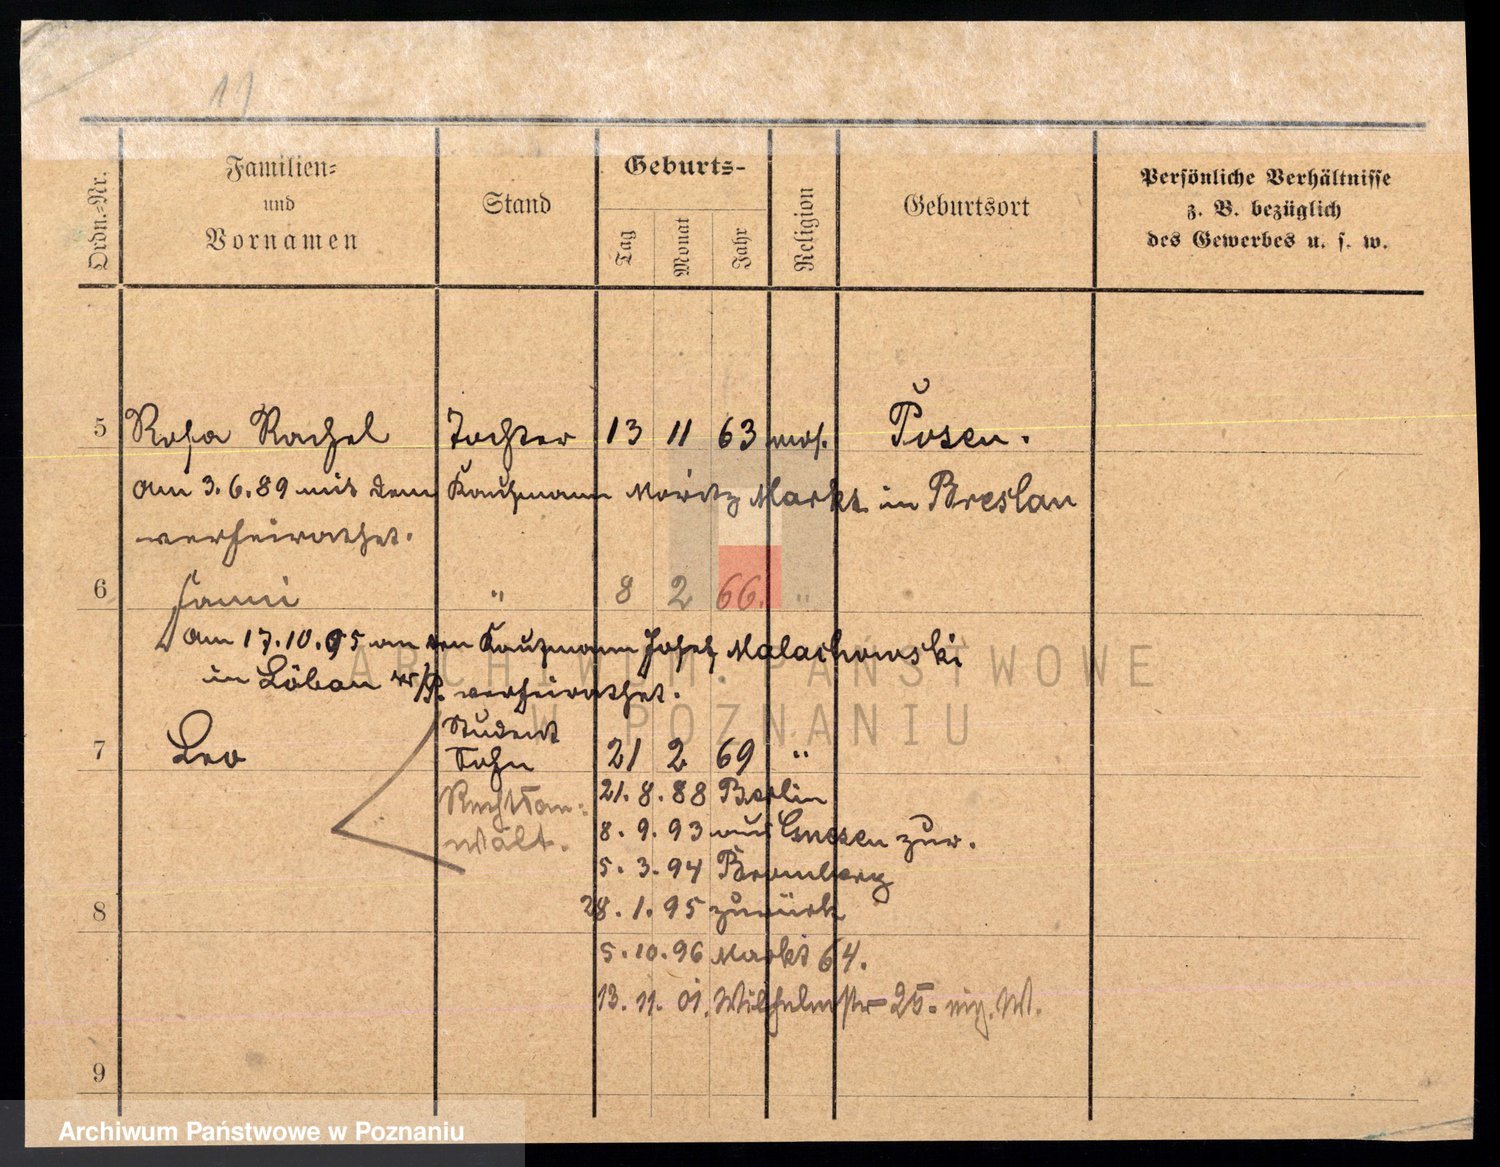 11
Ordn.-Nr.
Familien-
und
Vornamen
Stand
Geburts-
Tag
Monat
Jahr
Religion
Geburtsort
Persönliche Verhältnisse
z. B. bezüglich
des Gewerbes u. s. w.
5 Rosa Rachel Tochter 13 11 63 mos. Posen.
am 3.6.89 mit dem Kaufmann Moritz Markt in Breslau
verheirathet.
6 Fanni " 8 2 66. "
am 17.10.95 an den Kaufmann Josef Malachowski
in Löbau W/Pr. verheirathet.
Student
7 Leo Sohn 21 2 69 "
Rechtsan=
walt.
21. 8. 88 Berlin
8. 9. 93 aus Gnesen zur.
5. 3. 94 Bromberg
8
28. 1. 95 zurück
5. 10. 96 Markt 64.
13. 11. 01. Wilhelmstr 25. eig. W.
9
ARCHIWUM PAŃSTWOWE
W POZNANIU
Archiwum Państwowe w Poznaniu